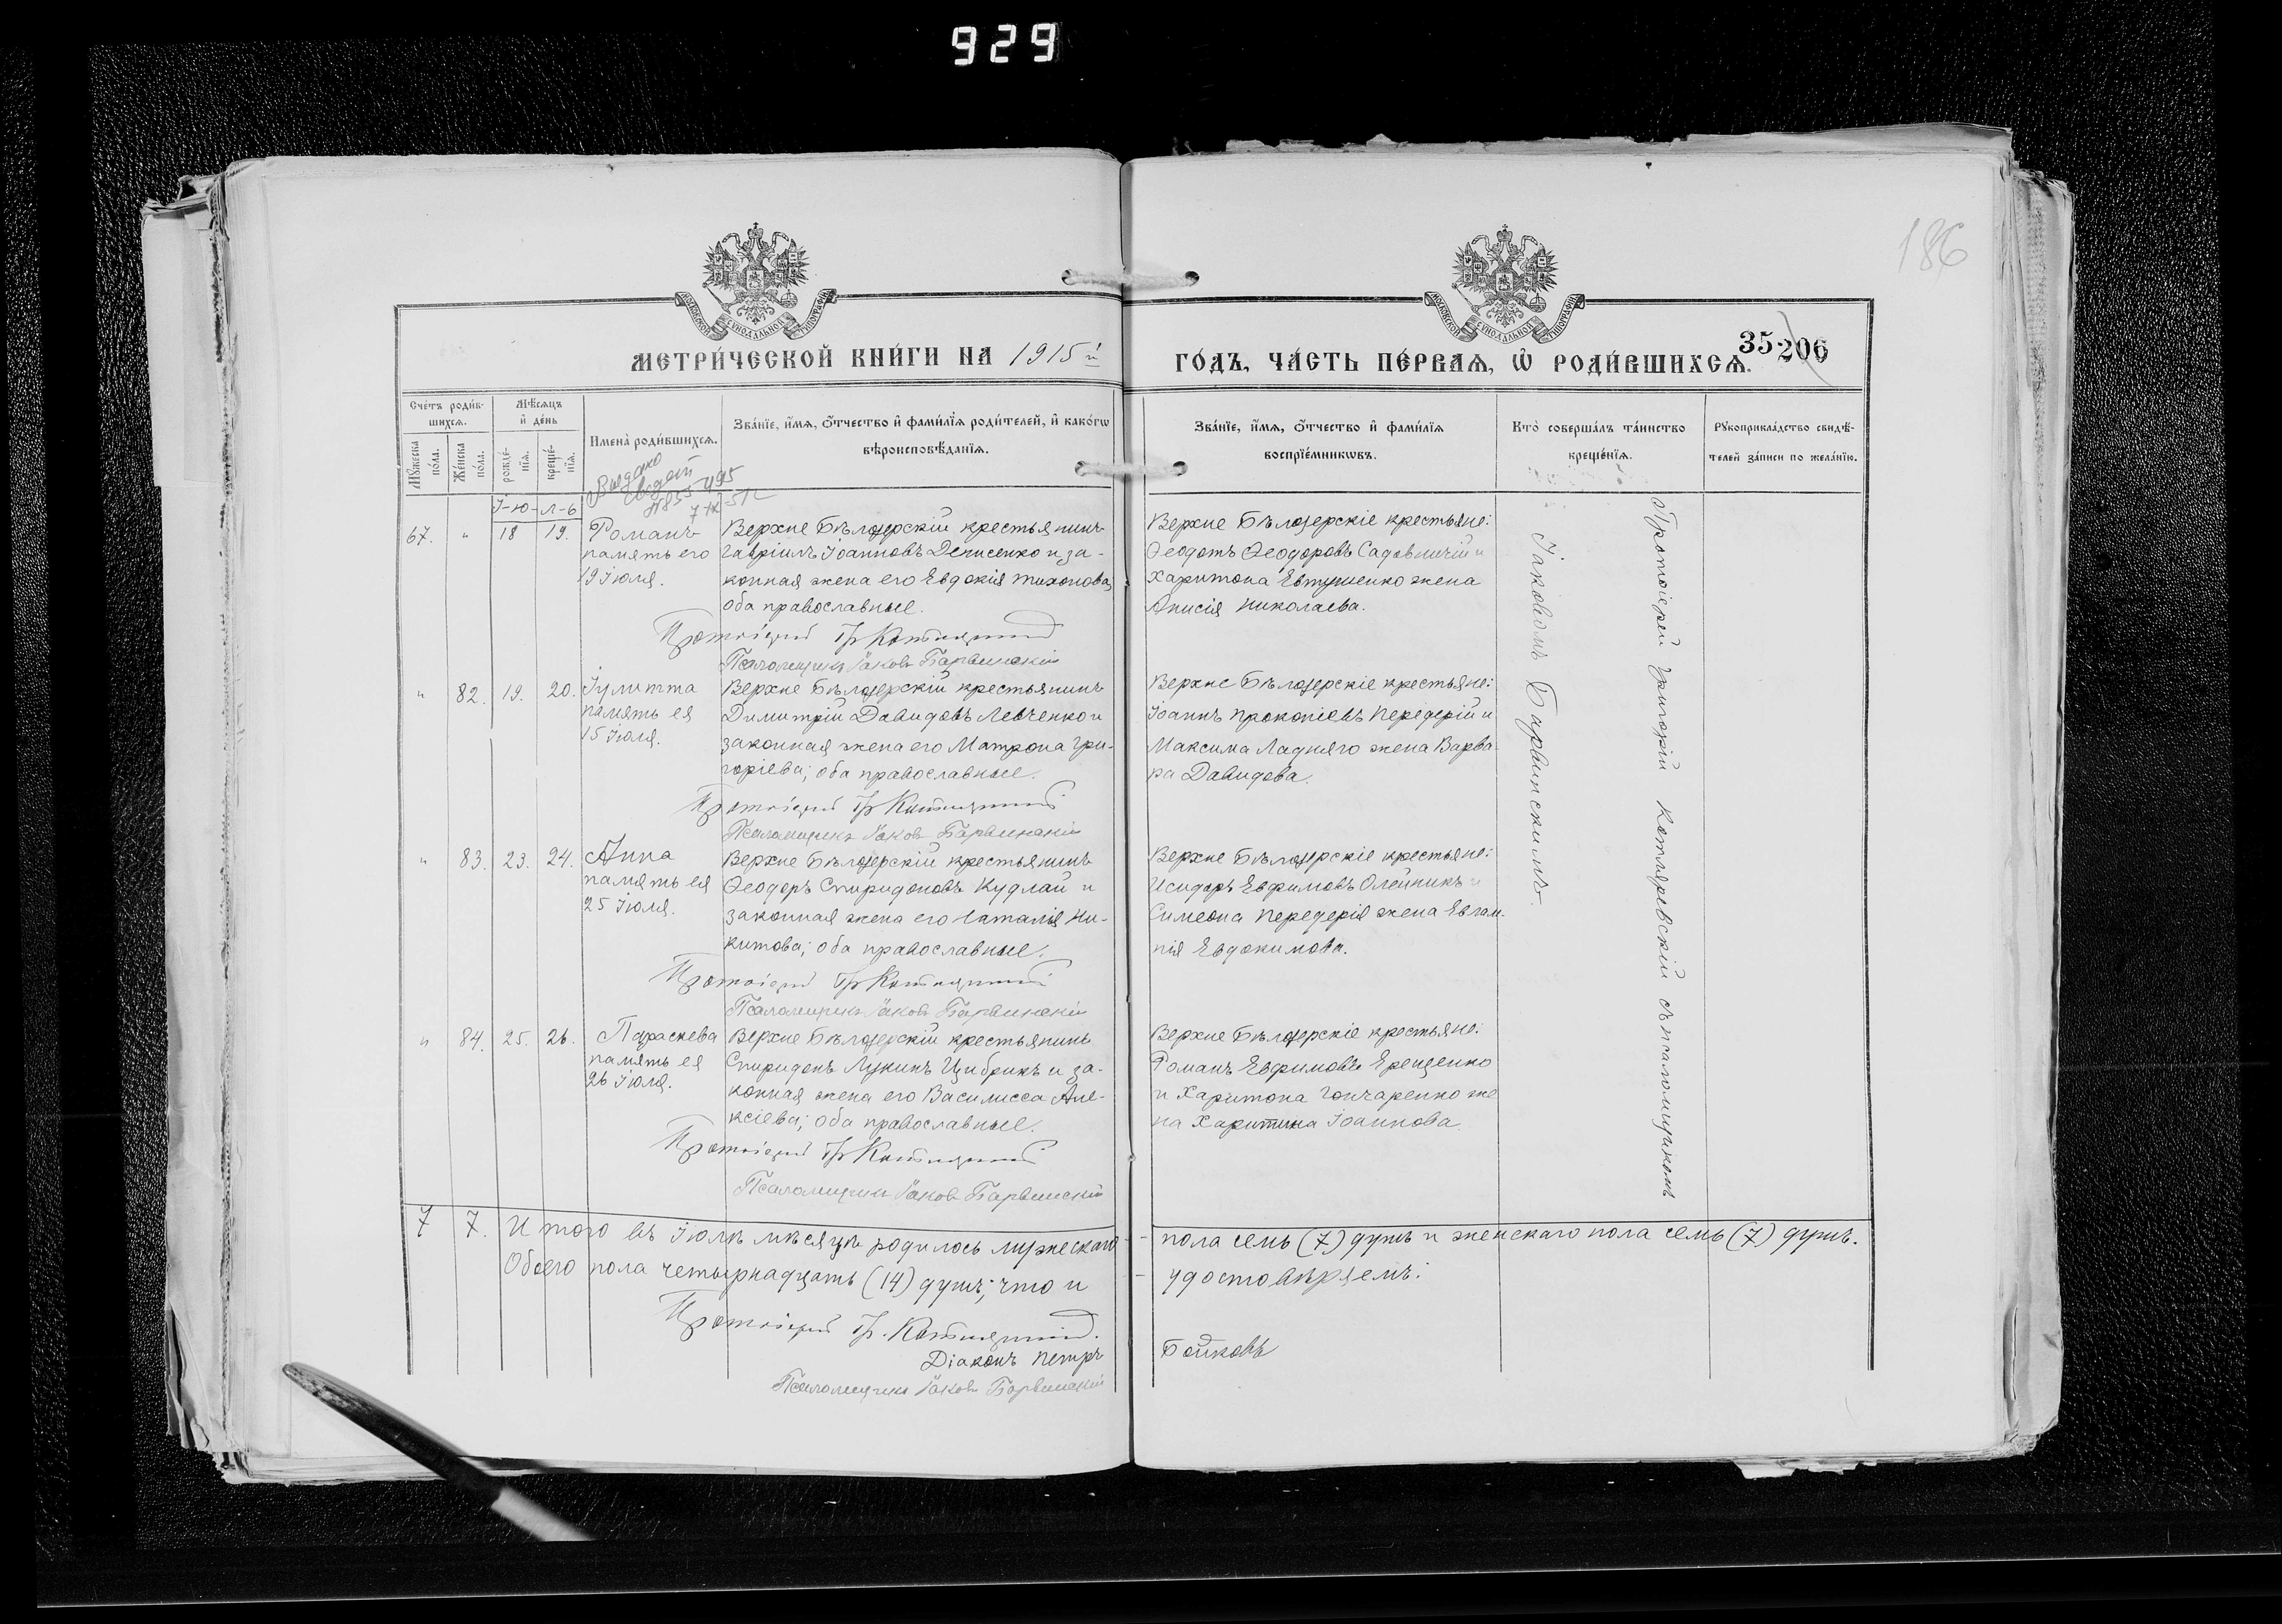 929
186
МЕТРИ́ЧЕСКОЙ КНИ́ГИ НА 1915й
ГО́ДЪ, ЧА́СТЬ ПЕ́РВАЯ, Ѡ РОДИ́ВШИХСЯ.
35
206
Сче́тъ роди́в-
шихся.
Мꙋ́жеска по́ла.
Же́нска по́ла.
Мѣ́сяцъ
и҆ де́нь
рожде́-
нїя.
креще́-
нїя.
Имена̀ роди́вшихся.
Зва́нїе, и҆́мя, ѻ҆́тчество и҆ фами́лїя роди́телей, и҆ како́гѡ
вѣроисповѣ́данїя.
Зва́нїе, и҆́мя, ѻ҆́тчество и҆ фами́лїя
воспрїе́мникѡвъ.
Кто̀ соверша́лъ та́инство
креще́нїя.
Рꙋкоприкла́дство свидѣ́-
телей за́писи по жела́нїю.
Выдано
І-ю-л-ь
67. " 18 19. Романъ
память его
19 Іюля.
Верхне Бѣлозерскій крестьянинъ
Гавріилъ Іоанновъ Денисенко и за-
конная жена его Евдокія Тихонова,
оба православные.
Протоіерей Гр Котляревскій
Псаломщикъ Іаковъ Барвинскій
Верхне Бѣлозерскіе крестьяне:
Ѳеодотъ Ѳеодоровъ Садовничій и
Харитона Евтушенко жена
Анисія Николаева.
" 82. 19. 20. Іулитта
память ея
15 Іюля.
Верхне Бѣлозерскій крестьянинъ
Димитрій Давидовъ Левченко и
законная жена его Матрона Гри-
горіева; оба православные.
Протоіерей Гр Котляревскій
Псаломщикъ Іаковъ Барвинскій
Верхне Бѣлозерскіе крестьяне:
Іоаннъ Прокопіевъ Передерій и
Максима Ладняго жена Варва-
ра Давидова.
" 83. 23. 24. Анна
память ея
25 Іюля.
Верхне Бѣлозерскій крестьянинъ
Ѳеодоръ Спиридоновъ Кудлай и
законная жена его Наталія Ни-
китова; оба православные.
Протоіерей Гр Котляревскій
Псаломщикъ Іаковъ Барвинскій
Верхне Бѣлозерскіе крестьяне:
Исидоръ Евфимовъ Олейникъ и
Симеона Передерія жена Евлам-
пія Евдокимова.
" 84. 25. 26. Параскева
память ея
26 Іюля.
Верхне Бѣлозерскій крестьянинъ
Спиридонъ Лукинъ Цибрикъ и за-
конная жена его Василисса Але-
ксіева; оба православные.
Протоіерей Гр Котляревскій
Псаломщикъ Іаковъ Барвинскій
Верхне Бѣлозерскіе крестьяне:
Романъ Евфимовъ Ерещенко
и Харитона Гончаренко же
на Харитина Іоаннова.
Протоіерей Григорій Котляревскій съ псаломщикомъ
Іаковомъ Барвинскимъ.
7 7. Итого въ Іюлѣ мѣсяцѣ родилось мужескаго
пола семь (7) душъ и женскаго пола семь (7) душъ.
Обоего пола четырнадцать (14) душъ; что и
удостовѣряемъ:
Протоіерей Гр. Котляревскій.
Діаконъ Петръ
Бойковъ
Псаломщикъ Іаковъ Барвинскій